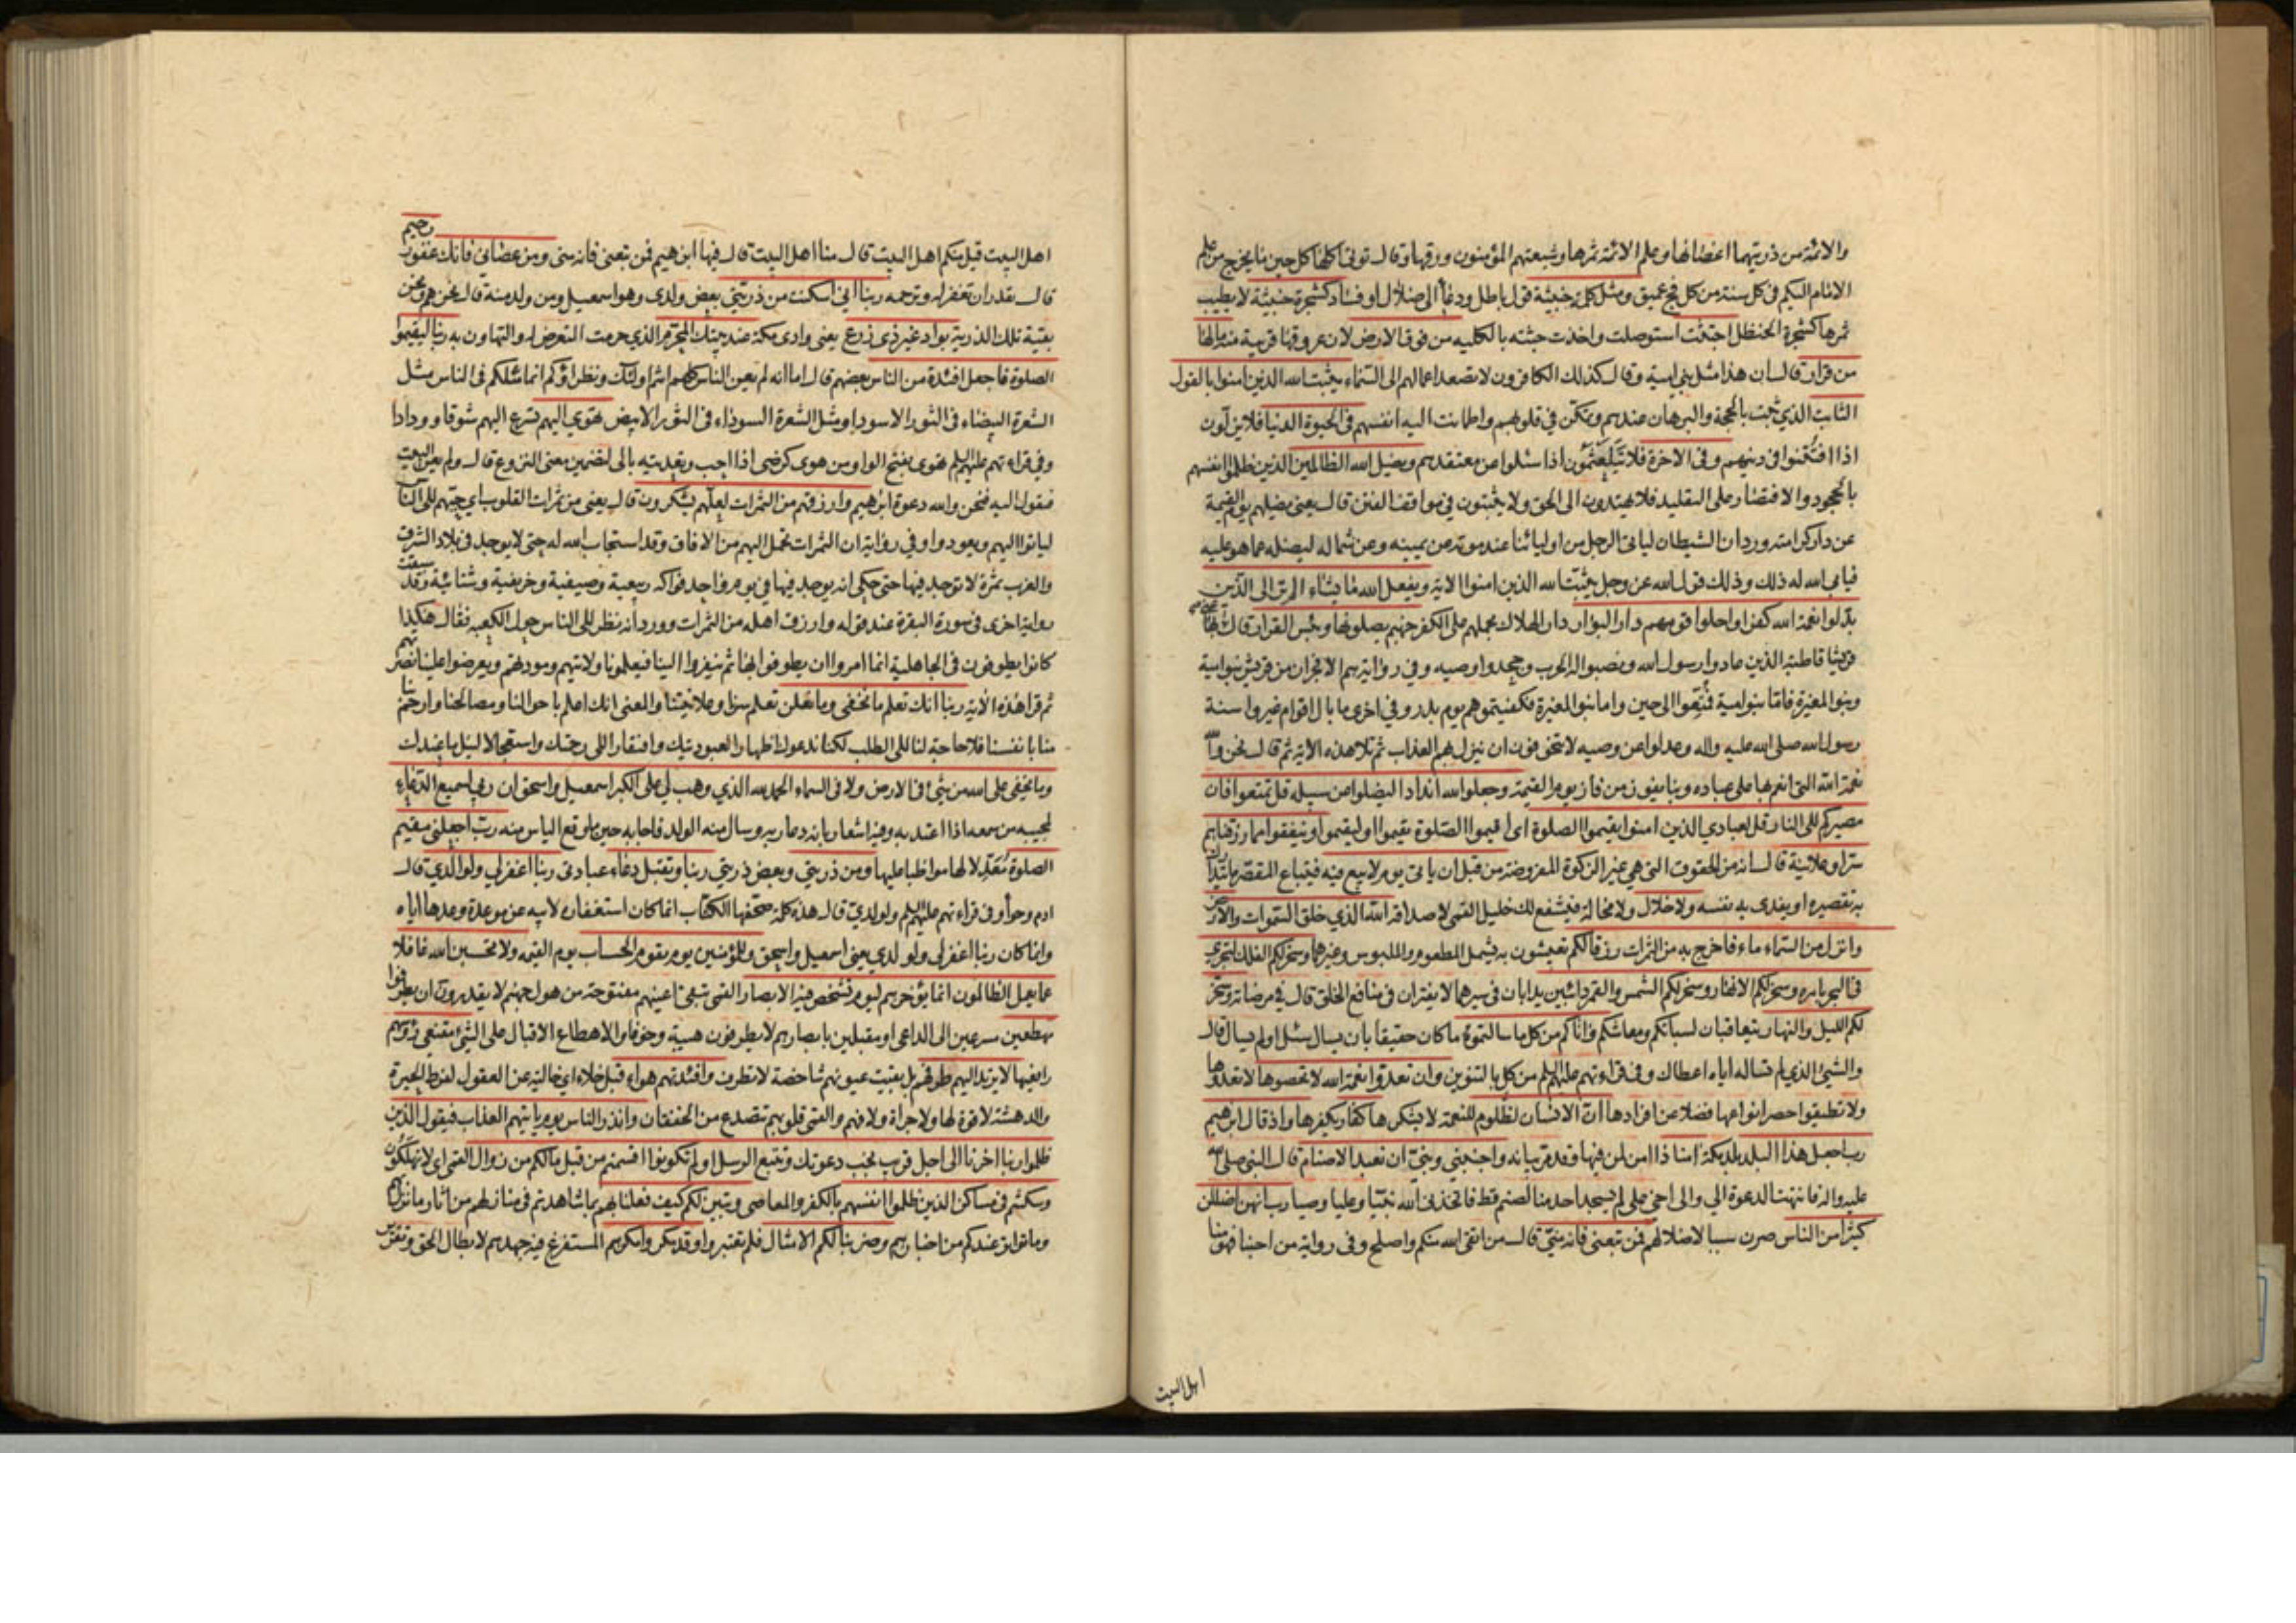 والائمة من ذريتهما اغصانها وعلم الائمة ثمرها وشيعتهم المؤمنون ورقها وقال تؤتى اكلها كل حين ما يخرج من علم
الامام اليكم فى كل سنة من كل فج عميق ومثل كلمة خبيثة قول باطل ودعاء الى ضلال او فساد كشجرة خبيثة لا يطيب
ثمرها كشجرة الحنظل اجتثت استوصلت واخذت جثته بالكليه من فوق الارض لان عروقها قريبة منه مالها
من قرار قال ان هذا مثل بنى امية وقال كذلك الكافرون لا تصعد اعمالهم الى السماء يثبت الله الذين امنوا بالقول
الثابت الذي ثبت بالحجة والبرهان عندهم وتمكن في قلوبهم واطمانت اليه انفسهم فى الحيوة الدنيا فلا يزلون
اذا افتتنوا فى دينهم وفى الاخرة فلا يتلعثمون اذا سئلوا عن معتقدهم ويضل الله الظالمين الذين ظلموا انفسهم
بالجحود والاقتصار على التقليد فلا يهتدون الى الحق ولا يثبتون في مواقف الفتن قال يعنى يضلهم يوم القيمة
عن دار كرامته ورد ان الشيطان لياتى الرجل من اوليائنا عند موته عن يمينه وعن شماله ليضله عما هو عليه
فيابى الله له ذلك وذلك قول الله عز وجل يثبت الله الذين امنوا الاية ويفعل الله ما يشاء الم تر الى الذين
بدلوا نعمة الله كفرا واحلوا قومهم دار البوار دار الهلاك بحملهم على الكفر جهنم يصلونها وبئس القرار قال
قريشا قاطبة الذين عادوا رسول الله ونصبوا له الحرب وجحدوا وصيه وفي رواية هم الافجران من قريش بنو امية
وبنو المغيرة فاما بنو امية فمتعوا الى حين واما بنو المغيرة فكفيتموهم يوم بدر وفي اخرى ما بال اقوام غيروا سنة
رسول الله صلى الله عليه واله وعدلوا عن وصيه لا يتخوفون ان ينزل بهم العذاب ثم تلا هذه الاية ثم قال نحن والله
نعمة الله التى انعم بها على عباده وبنا يفوز من فاز يوم القيمة وجعلوا لله اندادا ليضلوا عن سبيله قل تمتعوا فان
مصيركم الى النار قل لعبادي الذين امنوا يقيموا الصلوة اى اقيموا الصلوة يقيموا او ليقيموا وينفقوا مما رزقناهم
سرا وعلانية قال انه من الحقوق التى هى غير الزكوة المفروضة من قبل ان ياتى يوم لا بيع فيه فيبتاع المقصر ما يتدارك
به تقصيره او يفدى به نفسه ولا خلال ولا مخالة فيشفع لك خليل الله الذي خلق السموات والارض
وانزل من السماء ماء فاخرج به من الثمرات رزقا لكم تعيشون به فيشمل المطعوم والملبوس وغيرهما وسخر لكم الفلك لتجرى
فى البحر بامره وسخر لكم الانهار وسخر لكم الشمس والقمر دائبين يدابان فى سيرهما لا يفتران فى منافع الخلق قال فى مرضاته وسخر
لكم الليل والنهار يتعاقبان لسباتكم ومعاشكم واتاكم من كل ما سالتموه ما كان حقيقا بان يسال سئل او لم يسال قال
والشئ الذي لم تساله اياه اعطاك وفى قراءتهم عليهم السلم من كل بالتنوين وان تعدوا نعمة الله لا تحصوها لا تعدوها
ولا تطيقوا حصر انواعها فضلا عن افرادها ان الانسان لظلوم للنعمة لا يشكرها كفار يكفرها واذ قال ابرهيم
رب اجعل هذا البلد بلد مكة امنا ذا امن لمن فيها وقد مر بيانه واجنبني وبنيّ ان نعبد الاصنام قال النبى صلى الله
عليه واله فانتهت الدعوة الي والى اخى على لم يسجد احد منا لصنم قط فاتخذنى الله نبيا وعليا وصيا رب انهن اضللن
كثيرا من الناس صرن سببا لاضلالهم فمن تبعنى فانه منى قال من اتقى الله منكم واصلح وفى رواية من احبنا فهو منا
اهل البيت
اهل البيت قيل منكم اهل البيت قال منا اهل البيت قال فيها ابرهيم فمن تبعنى فانه منى ومن عصانى فانك غفور رحيم
قال تقدر ان تغفر له وترحمه ربنا انى اسكنت من ذريتى بعض ولدى وهو اسمعيل ومن ولد منه قال نحن هم ونحن
بقية تلك الذرية بواد غير ذى زرع يعنى وادى مكة عند بيتك المحرم الذي حرمت التعرض له والتهاون به ربنا ليقيموا
الصلوة فاجعل افئدة من الناس بعضهم قال اما انه لم يعن الناس كلهم انتم اولئك ونظراؤكم انما مثلكم فى الناس مثل
الشعرة البيضاء فى الثور الاسود او مثل الشعرة السوداء فى الثور الابيض تهوي اليهم تسرع اليهم شوقا وودادا
وفى قراءتهم عليهم السلم تهوى بفتح الواو من هوى كرضى اذا احب وتعديته بالى لتضمين معنى النزوع قال ولم يعن البيت
فيقول اليه فنحن والله دعوة ابرهيم وارزقهم من الثمرات لعلهم يشكرون قال يعنى من ثمرات القلوب اى حبهم الى الناس
لياتوا اليهم ويعودوا وفي رواية ان الثمرات تحمل اليهم من الافاق وقد استجاب الله له حتى لا يوجد فى بلاد الشرق
والغرب ثمرة لا توجد فيها حتى حكى انه يوجد فيها فى يوم واحد فواكه ربيعية وصيفية وخريفية وشتائية وقد سبقت
رواية اخرى فى سورة البقرة عند قوله وارزق اهله من الثمرات وورد انه نظر الى الناس حول الكعبه فقال هكذا
كانوا يطوفون فى الجاهلية انما امروا ان يطوفوا بها ثم ينفروا الينا فيعلمونا ولايتهم ومودتهم ويعرضوا علينا نصرتهم
ثم قرا هذه الاية ربنا انك تعلم ما نخفى وما نعلن تعلم سرنا وعلانيتنا والمعنى انك اعلم باحوالنا ومصالحنا وارحم بنا
منا بانفسنا فلا حاجة لنا الى الطلب لكنا ندعوك اظهارا لعبوديتك وافتقارا الى رحمتك واستعجالا لنيل ما عندك
وما يخفى على الله من شئ فى الارض ولا فى السماء الحمد لله الذي وهب لي على الكبر اسمعيل واسحق ان ربي لسميع الدعاء
لمجيبه من سمعه اذا اعتد به وفيه اشعار بانه دعا ربه وسال منه الولد فاجابه حين ما وقع الياس منه رب اجعلنى مقيم
الصلوة معدلا لها مواظبا عليها ومن ذريتي وبعض ذريتي ربنا وتقبل دعاء عبادتى ربنا اغفر لي ولوالدي قال
ادم وحوا وفى قراءتهم عليهم السلم ولولدي قال هذه كلمة صحفها الكتاب انما كان استغفاره لابيه عن موعدة وعدها اياه
وانما كان ربنا اغفر لى ولولدي يعنى اسمعيل واسحق وللمؤمنين يوم يقوم الحساب يوم القيمه ولا تحسبن الله غافلا
عما يعمل الظالمون انما يؤخرهم ليوم تشخص فيه الابصار القمى تبقى اعينهم مفتوحة من هول جهنم لا يقدرون ان يطرفوا
مهطعين مسرعين الى الداعى او مقبلين بابصارهم لا يطرفون هيبة وخوفا والاهطاع الاقبال على الشئ مقنعى رؤسهم
رافعيها لا يرتد اليهم طرفهم بل بقيت عيونهم شاخصة لا تطرف وافئدتهم هواء قيل خلاء اى خالية عن العقول لفرط الحيرة
والدهشة لا قوة لها ولا جراة ولا فهم والقمى قلوبهم تتصدع من الخفقان وانذر الناس يوم ياتيهم العذاب فيقول الذين
ظلموا ربنا اخرنا الى اجل قريب نجب دعوتك ونتبع الرسل اولم تكونوا اقسمتم من قبل مالكم من زوال القمى اى لا تهلكون
وسكنتم فى مساكن الذين ظلموا انفسهم بالكفر والمعاصى وتبين لكم كيف فعلنا بهم بما شاهدتم فى منازلهم من اثار ما نزل بهم
وما تواتر عندكم من اخبارهم وضربنا لكم الامثال فلم تعتبروا وقد مكروا مكرهم المستفرغ فيه جهدهم لابطال الحق وتقرير